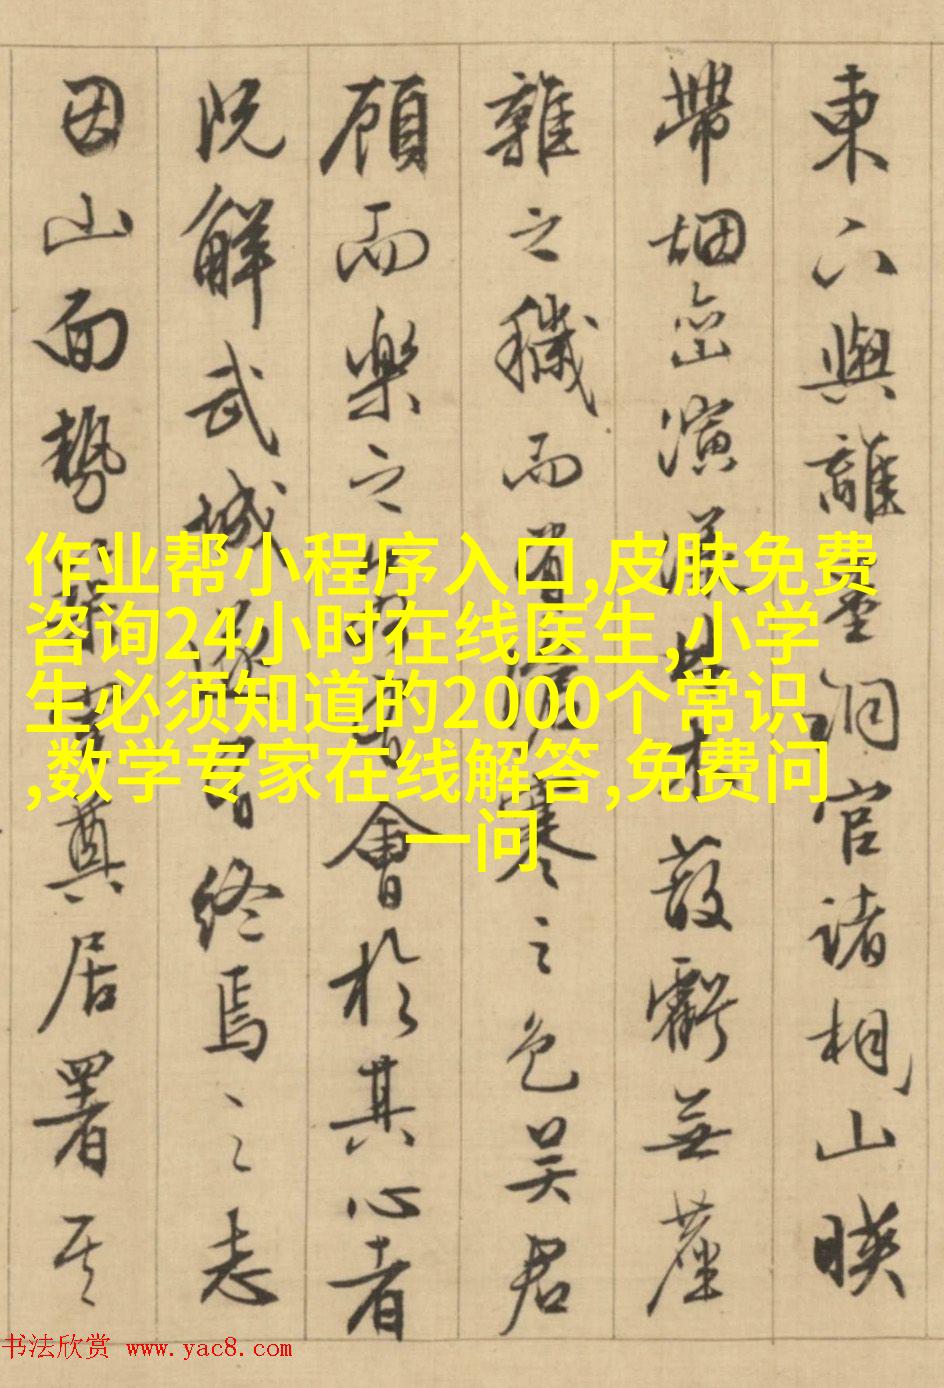 東六與離墨銅官諸相山暎
帶烟巒演漾林木蔽虧無塵
雜之穢而寒之色吳君
顧而樂之會於其心者
既解武城終焉之志
因山面勢奠居署其
作业帮小程序入口,皮肤免费
咨询24小时在线医生,小学
生必须知道的2000个常识
,数学专家在线解答,免费问
一问
书法欣赏 www.yac8.com